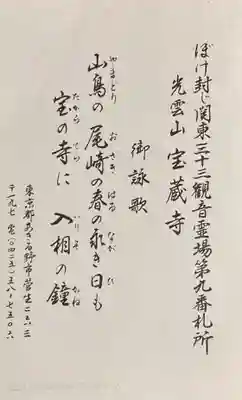 ぼけ封じ関東三十三観音霊場第九番札所
光雲山 宝蔵寺
御詠歌
山鳥の 尾崎の春の永き日も
やまどり おさき はる ながひ
宝の寺に 入相の鐘
たから てら いりそ かね
東京都あきる野市菅生二六三
〒一九七 電(〇四二五)五八ー七五〇六